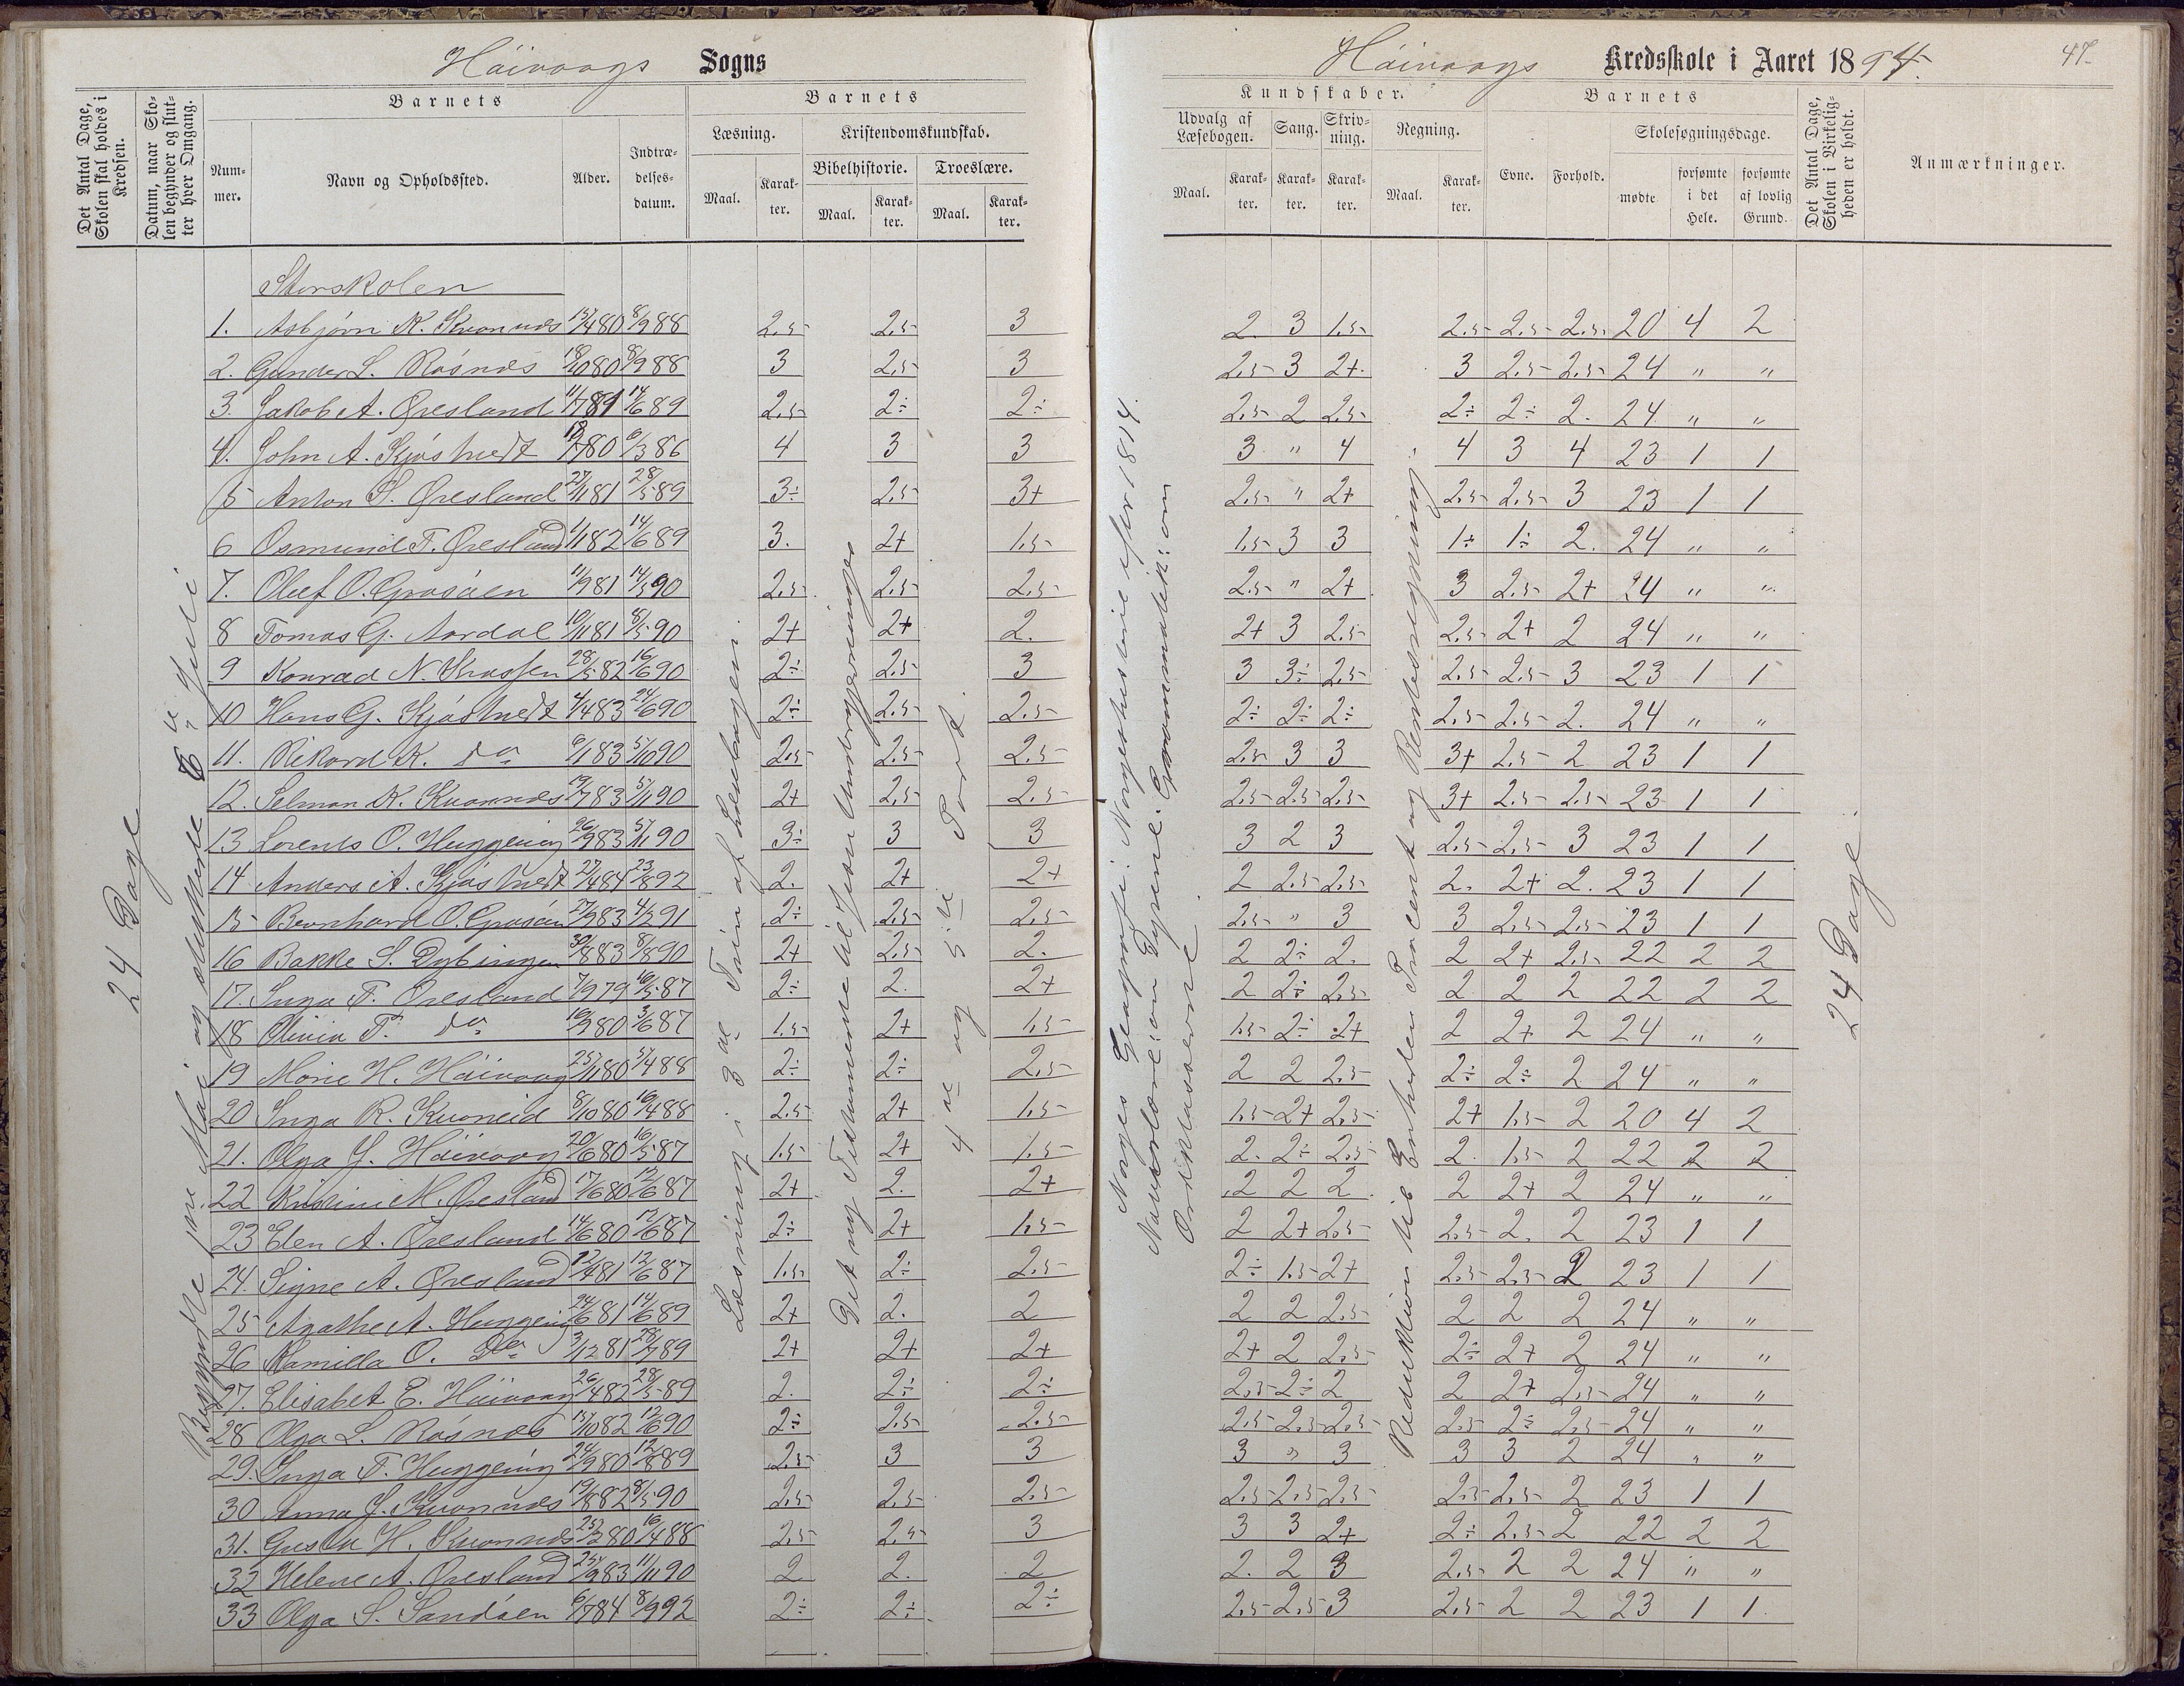 Höivaags Sogns
Höivaags Kredsskole i Aaret 1894.
47.
Det Antal Dage, Skolen skal holdes i Kredsen.
Datum, naar Skolen begynder og slutter hver Omgang.
Barnets
Nummer.
Navn og Opholdssted.
Alder.
Indtrædelsesdatum.
Barnets
Læsning.
Maal.
Karakter.
Kristendomskundskab.
Bibelhistorie.
Maal.
Karakter.
Troeslære.
Maal.
Karakter.
Kundskaber.
Udvalg af Læsebogen.
Maal.
Karakter.
Sang.
Karakter.
Skrivning.
Karakter.
Regning.
Maal.
Karakter.
Barnets
Evne.
Forhold.
Skolesøgningsdage.
mødte
forsømte i det Hele.
forsømte af lovlig Grund.
Det Antal Dage, Skolen i Virkeligheden er holdt.
Anmærkninger.
24 Dage
Læsning i 3die Trin af Læsebogen.
Det ny Testamente til
4de og 5te Part.
Norges Geografi: Norgeshistorie efter 1814.
Naturlære: om Dyrene. Grammatik: om Ordklasserne.
Reduktion til Enheden Procent og Rentesregning.
24 Dage.
Storskolen
1. Asbjørn K. Kvannes 15/4 80 8/9 88 2.5 2.5 3 2. 3 1.5 2.5 2.5 2.5 20 4 2
2. Gunder L. Røsnes 18/10 80 8/9 88 3 2.5 3 2.5 3 2+ 3 2.5 2.5 24 " "
3. Jakob A. Øresland 11/7 81 14/6 89 2.5 2÷ 2÷ 2.5 2 2.5 2÷ 2÷ 2. 24 " "
4. John A. Kjøstvedt 80 6/3 86 4 3 3 3 " 4 4 3 4 23 1 1
5 Anton S. Øresland 27/11 81 28/5 89 3÷ 2.5 3+ 2.5 " 2+ 2.5 2.5 3 23 1 1
6 Osmund T. Øresland 1/1 82 14/6 89 3. 2+ 1.5 1.5 3 3 1÷ 1÷ 2. 24 " "
7. Oluf O. Grosåen 11/9 81 14/5 90 2.5 2.5 2.5 2.5 " 2+ 3 2.5 2+ 24 " "
8 Tomas G. Aardal 10/11 81 8/5 90 2+ 2+ 2. 2+ 3 2.5 2.5 2+ 2 24 " "
9 Konrad N. 28/5 82 16/6 90 2÷ 2.5 3 3 3÷ 2.5 2.5 2.5 3 23 1 1
10 Hans G. Kjøstvedt 4/4 83 24/6 90 2÷ 2.5 2.5 2÷ 2÷ 2÷ 2.5 2.5 2. 24 " "
11. Rikard K. do 6/1 83 5/10 90 2.5 2.5 2.5 2.5 3 3 3+ 2.5 2 23 1 1
12. Selman K. Kvannes 19/7 83 5/11 90 2+ 2.5 2.5 2.5 2.5 2.5 3+ 2.5 2.5 23 1 1
13 Lorents O. Huggeing 26/9 83 5/11 90 3÷ 3 3 3 2 3 2.5 2.5 3 23 1 1
14 Anders A. Kjøstvedt 27/4 84 23/8 92 2. 2+ 2+ 2 2.5 2.5 2. 2+ 2. 23 1 1
15 Bernhard O. Grosåen 27/9 83 4/2 91 2÷ 2.5 2.5 2.5 " 3 3 2.5 2.5 23 1 1
16 Bakke S. Dybingen 30/8 83 8/8 90 2+ 2.5 2. 2 2÷ 2. 2 2+ 2.5 22 2 2
17. Inga T. Øresland 7/9 79 16/5 87 2÷ 2. 2+ 2 2÷ 2.5 2 2 2 22 2 2
18 Olivia T. do 16/9 80 3/6 87 1.5 2+ 1.5 1.5 2÷ 2+ 2 2+ 2 24 " "
19 Marie H. Höivaag 25/11 80 5/4 88 2÷ 2÷ 2.5 2 2 2.5 2÷ 2÷ 2 24 " "
20 Inga R. Kvaneid 8/10 80 16/4 88 2.5 2+ 1.5 1.5 2+ 2.5 2+ 1.5 2 20 4 2
21. Olga J. Höivaag 20/6 80 16/5 87 1.5 2+ 1.5 2. 2÷ 2.5 2. 1.5 2 22 2 2
22 Kristine M. Øresland 17/6 80 12/6 87 2+ 2. 2+ 2 2 2 2 2+ 2 24 " "
23 Elen A. Øresland 14/6 80 12/6 87 2÷ 2+ 1.5 2 2+ 2.5 2.5 2. 2 23 1 1
24. Signe A. Øresland 12/4 81 12/6 87 1.5 2÷ 2.5 2÷ 1.5 2+ 2.5 2.5 2 23 1 1
25 Agathe A. Huggeing 24/6 81 14/6 89 2+ 2. 2 2 2 2.5 2 2 2 24 " "
26 Kamilla O. do 3/12 81 28/7 89 2+ 2+ 2+ 2+ 2 2.5 2÷ 2+ 2 24 " "
27. Elisabet E. Höivaag 26/4 82 28/5 89 2. 2÷ 2÷ 2.5 2÷ 2 2 2+ 2.5 24 " "
28 Olga L. Røsnes 15/10 82 12/6 90 2÷ 2.5 2.5 2.5 2.5 2.5 2.5 2÷ 2.5 24 " "
29. Inga T. Huggeing 24/9 80 12/8 89 2.5 3 3 3 " 3 3 3 2 24 " "
30 Anna J. Kvannes 19/8 82 8/5 90 2.5 2.5 2.5 2.5 2.5 2.5 2.5 2.5 2 23 1 1
31. Gusta H. Kvannes 25/2 80 16/4 88 2.5 2.5 3 3 3 2+ 2÷ 2.5 2 22 2 2
32 Helene A. Øresland 25/9 83 11/11 90 2 2. 2 2. 2 3 2.5 2 2 24 " "
33 Olga S. Sandåen 6/7 84 8/9 92 2÷ 2÷ 2÷ 2.5 2.5 3 2.5 2 2 23 1 1